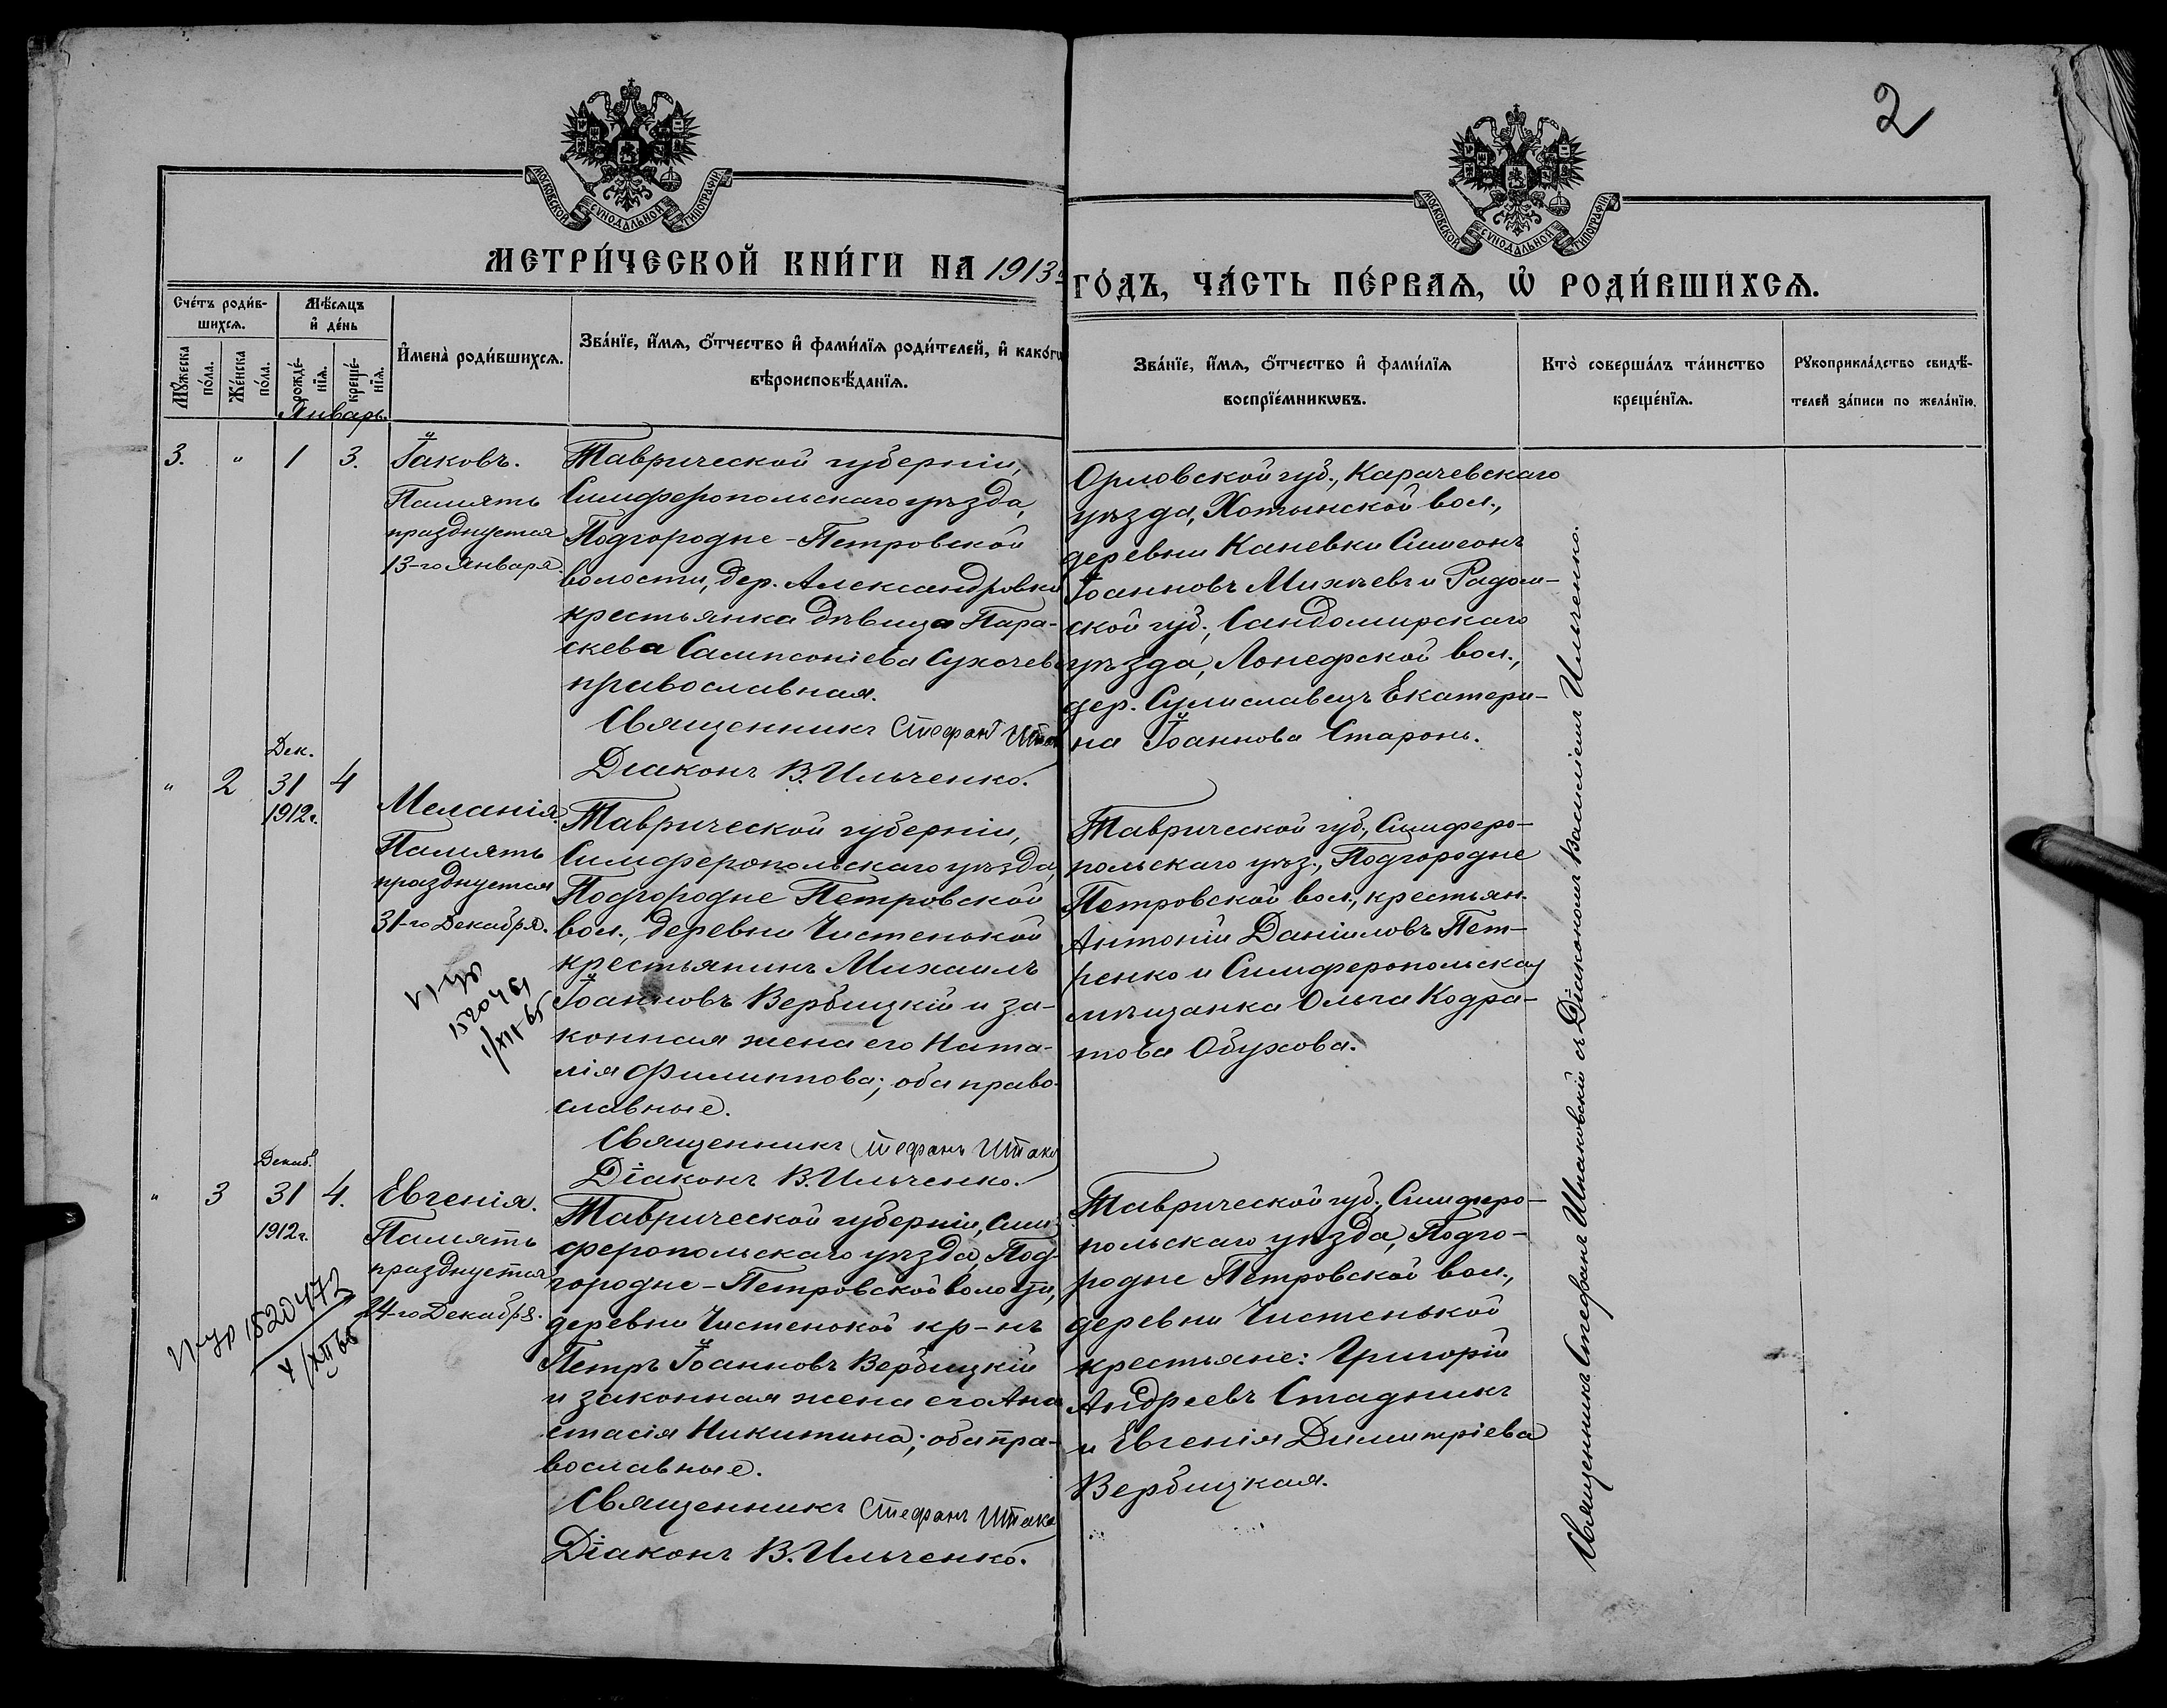 2
МОСКОВСКОЙ СУНОДАЛЬНОЙ ТИПОГРАФІИ
МОСКОВСКОЙ СУНОДАЛЬНОЙ ТИПОГРАФІИ
МЕТРИ́ЧЕСКОЙ КНИ́ГИ НА 1913
ГО́ДЪ, ЧА́СТЬ ПЕ́РВАѦ, Ѽ РОДИ́ВШИХСѦ.
Сче́тъ роди́в-
шихсѧ.
Мꙋ́жеска
по́ла.
Же́нска
по́ла.
Мѣ́сѧцъ
и҆ де́нь
рожде́-
нїѧ.
креще́-
нїѧ.
Январь.
И҆мена̀ роди́вшихсѧ.
Зва́нїе, и҆́мѧ, ѻ҆́тчество и҆ фами́лїѧ роди́телей, и҆ како́гѡ
вѣроисповѣ́данїѧ.
Зва́нїе, и҆́мѧ, ѻ҆́тчество и҆ фами́лїѧ
воспрїе́мникѡвъ.
Кто̀ соверша́лъ та́инство
креще́нїѧ.
Рꙋкоприкла́дство свидѣ́-
телей за́писи по жела́нїю.
3. " 1 3.
Іаковъ.
Память
празднуется
13-го Января.
Таврической губерніи,
Симферопольскаго уѣзда,
Подгородне-Петровской
волости, дер. Александровки
крестьянка дѣвица Пара-
скева Сампсоніева Сухочева
православная.
Священникъ Стефанъ
Діаконъ В. Ильченко.
Орловской губ., Карачевскаго
уѣзда, Хотынской вол.,
деревни Каневки Симеонъ
Іоанновъ Михѣевъ и Радом-
ской губ., Сандомирскаго
уѣзда, Лонефской вол.,
дер. Сулиславецъ Екатери-
на Іоаннова Старонь.
Дек.
" 2 31 4
1912г.
Меланія.
Память
празднуется
31-го Декабря.
Таврической губерніи,
Симферопольскаго уѣзда,
Подгородне Петровской
вол., деревни Чистенькой
крестьянинъ Михаилъ
Іоанновъ Вербицкій и за-
конная жена его Ната-
лія Филиппова; оба право-
славные.
Священникъ Стефанъ
Діаконъ В. Ильченко.
Таврической губ., Симферо-
польскаго уѣз., Подгородне
Петровской вол., крестьян.
Антоній Даніиловъ Пет-
ренко и Симферопольская
мѣщанка Ольга Кодра-
това Обухова.
Декаб.
" 3 31 4.
1912г.
Евгенія.
Память
празднуется
24-го Декабря.
1520473
Таврической губерніи, Сим-
феропольскаго уѣзда, Под-
городне-Петровской волости,
деревни Чистенькой кр-нъ
Петръ Іоанновъ Вербицкій
и законная жена его Ана
стасія Никитина; оба пра-
вославные.
Священникъ Стефанъ
Діаконъ В. Ильченко.
Таврической губ., Симферо-
польскаго уѣзда, Подго-
родне Петровской вол.,
деревни Чистенькой
крестьяне: Григорій
Андреевъ Стадникъ
и Евгенія Димитріева
Вербицкая.
Священникъ Стефанъ Штаковскій съ Діакономъ Василіемъ Ильченко.